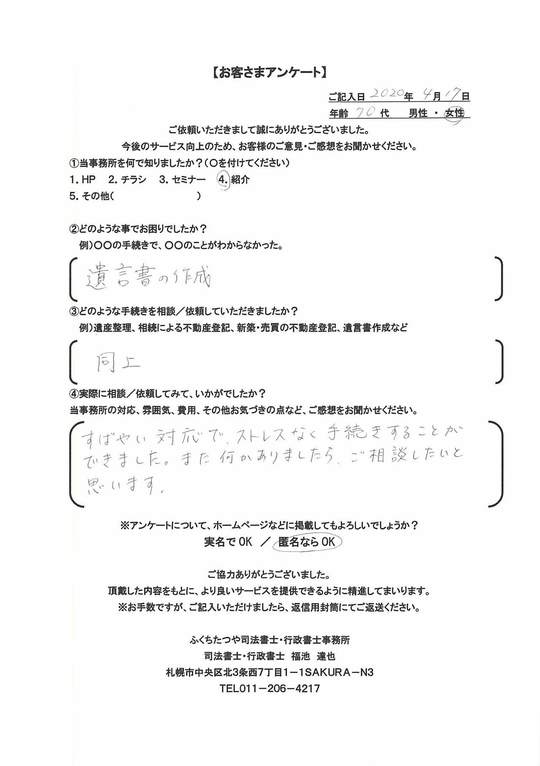 【お客さまアンケート】
ご記入日 2020年 4月 17日
年齢 70 代 男性 ・ 女性
ご依頼いただきまして誠にありがとうございました。
今後のサービス向上のため、お客様のご意見・ご感想をお聞かせください。
①当事務所を何で知りましたか？(○を付けてください)
1. HP 2. チラシ 3. セミナー 4. 紹介
5. その他( )
②どのような事でお困りでしたか？
例)○○の手続きで、○○のことがわからなかった。
遺言書の作成
③どのような手続きを相談／依頼していただきましたか？
例)遺産整理、相続による不動産登記、新築・売買の不動産登記、遺言書作成など
同上
④実際に相談／依頼してみて、いかがでしたか？
当事務所の対応、雰囲気、費用、その他お気づきの点など、ご感想をお聞かせください。
すばやい対応で、ストレスなく手続きすることが
できました。また何かありましたら、ご相談したいと
思います。
※アンケートについて、ホームページなどに掲載してもよろしいでしょうか？
実名でOK ／ 匿名ならOK
ご協力ありがとうございました。
頂戴した内容をもとに、より良いサービスを提供できるように精進してまいります。
※お手数ですが、ご記入いただけましたら、返信用封筒にてご返送ください。
ふくちたつや司法書士・行政書士事務所
司法書士・行政書士 福池 達也
札幌市中央区北3条西7丁目1－1SAKURA－N3
TEL011－206－4217